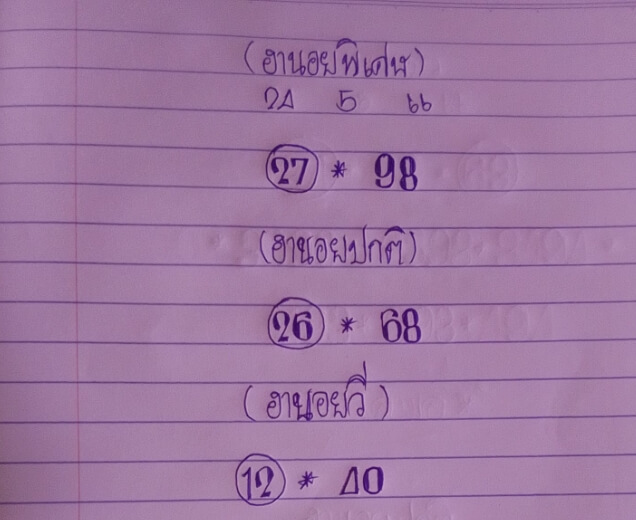 (ฮานอยพิเศษ)
24 5 66
27 * 98
(ฮานอยปกติ)
26 * 68
(ฮานอยวี)
12 * 40